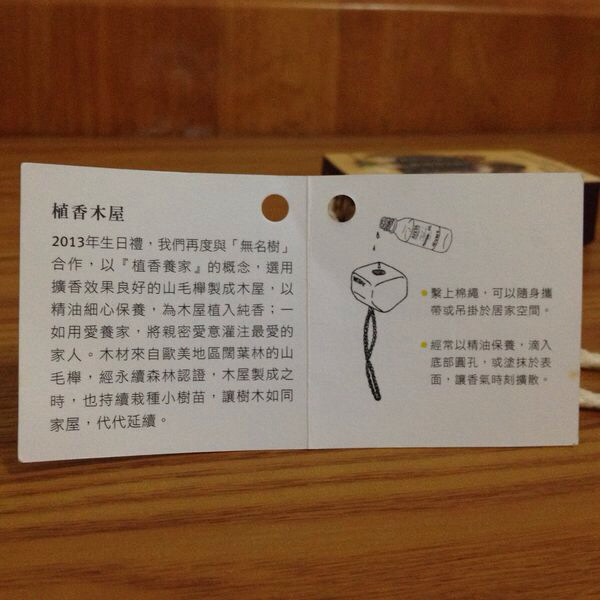 植香木屋
2013年生日禮，我們再度與「無名樹」
合作，以『植香養家』的概念，選用
擴香效果良好的山毛櫸製成木屋，以
精油細心保養，為木屋植入純香；一
如用愛養家，將親密愛意灌注最愛的
家人。木材來自歐美地區闊葉林的山
毛櫸，經永續森林認證，木屋製成之
時，也持續栽種小樹苗，讓樹木如同
家屋，代代延續。
繫上棉繩，可以隨身攜
帶或吊掛於居家空間。
經常以精油保養，滴入
底部圓孔，或塗抹於表
面，讓香氣時刻擴散。